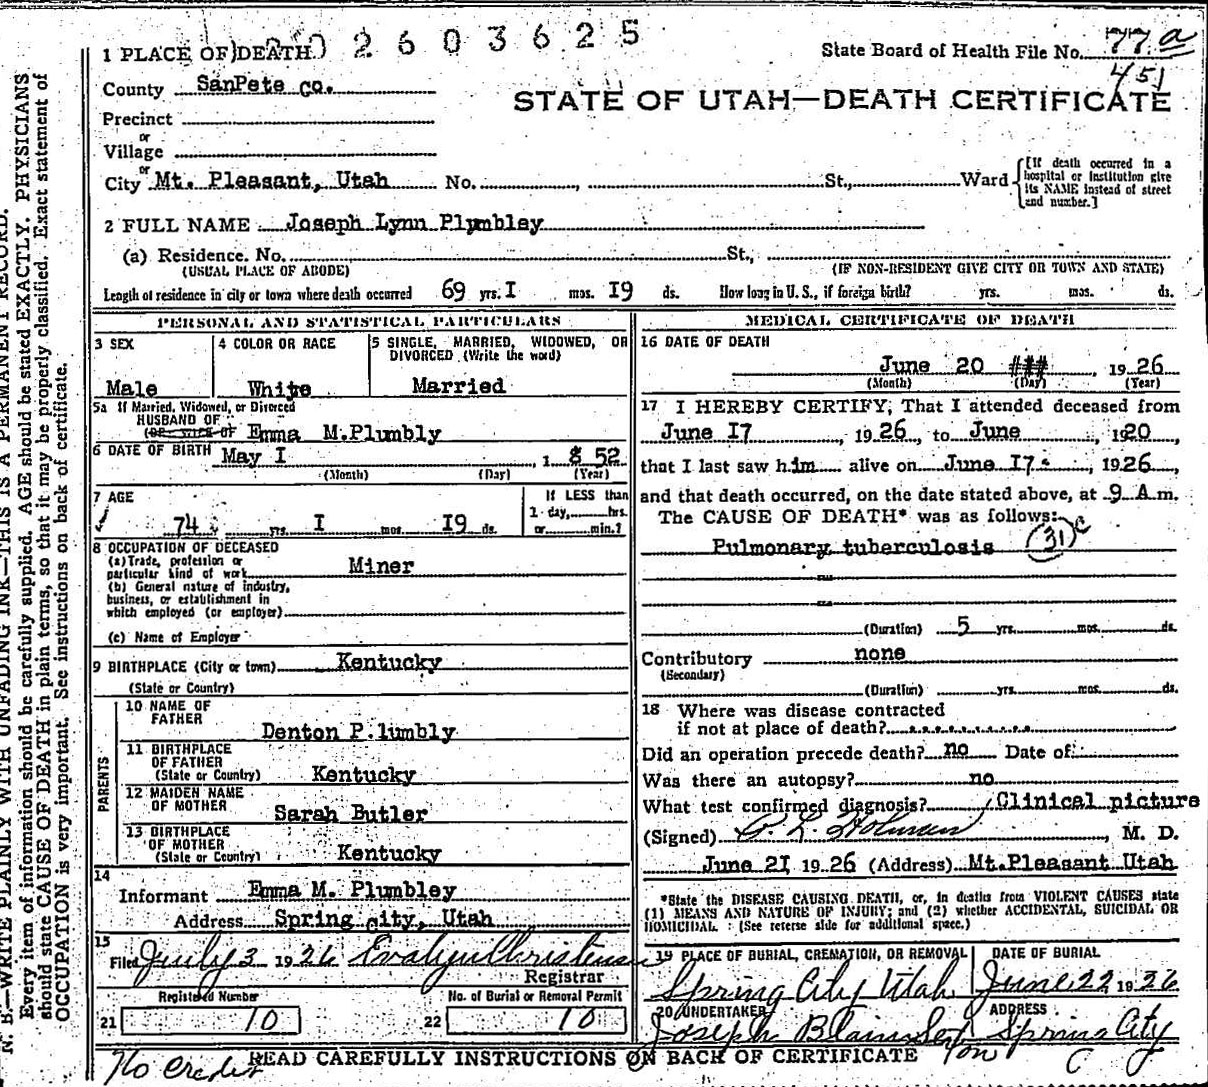 2 6 0 3 6 2 5
1 PLACE OF DEATH
State Board of Health File No. 77 a
451
County SanPete co.
STATE OF UTAH—DEATH CERTIFICATE
Precinct
or
Village
or
City Mt. Pleasant, Utah No. , St., Ward
[If death occurred in a hospital or institution give its NAME instead of street and number.]
2 FULL NAME Joseph Lynn Plumbley
(a) Residence. No. St.,
(USUAL PLACE OF ABODE) (IF NON-RESIDENT GIVE CITY OR TOWN AND STATE)
Length of residence in city or town where death occurred 69 yrs. I mos. I9 ds. How long in U. S., if foreign birth? yrs. mos. ds.
PERSONAL AND STATISTICAL PARTICULARS
3 SEX
Male
4 COLOR OR RACE
White
5 SINGLE, MARRIED, WIDOWED, OR
DIVORCED (Write the word)
Married
5a If Married, Widowed, or Divorced
HUSBAND OF
(OR WIFE OF Emma M.Plumbly
6 DATE OF BIRTH May I , 1 8 52
(Month) (Day) (Year)
7 AGE
74 yrs. I mos. I9 ds.
If LESS than
1 day, hrs.
or min.?
8 OCCUPATION OF DECEASED
(a) Trade, profession or
particular kind of work Miner
(b) General nature of industry,
business, or establishment in
which employed (or employer)
(c) Name of Employer
9 BIRTHPLACE (City or town) Kentucky
(State or Country)
PARENTS
10 NAME OF
FATHER
Denton P.lumbly
11 BIRTHPLACE
OF FATHER
(State or Country) Kentucky
12 MAIDEN NAME
OF MOTHER
Sarah Butler
13 BIRTHPLACE
OF MOTHER
(State or Country) Kentucky
14
Informant Emma M. Plumbley
Address Spring city, Utah
15
Filed July 3 1926 Evalyn Christensen
Registrar
Registered Number
21 10
No. of Burial or Removal Permit
22 10
MEDICAL CERTIFICATE OF DEATH
16 DATE OF DEATH
June 20 ### , 1926
(Month) (Day) (Year)
17 I HEREBY CERTIFY, That I attended deceased from
June I7 , 1926, to June , 1920,
that I last saw him alive on June I7. , 1926,
and that death occurred, on the date stated above, at 9 A.m.
The CAUSE OF DEATH* was as follows:
Pulmonary tuberculosis (31) c
(Duration) 5 yrs. mos. ds.
Contributory none
(Secondary)
(Duration) yrs. mos. ds.
18 Where was disease contracted
if not at place of death?
Did an operation precede death? no Date of:
Was there an autopsy? no
What test confirmed diagnosis? Clinical picture
(Signed) , M. D.
June 2I, 1926 (Address) Mt.Pleasant Utah
*State the DISEASE CAUSING DEATH, or, in deaths from VIOLENT CAUSES state
(1) MEANS AND NATURE OF INJURY; and (2) whether ACCIDENTAL, SUICIDAL OR
HOMICIDAL. (See reverse side for additional space.)
19 PLACE OF BURIAL, CREMATION, OR REMOVAL
Spring City Utah
DATE OF BURIAL
June 22, 1926
20 UNDERTAKER
Joseph Blain
ADDRESS
Spring City
No Credit
READ CAREFULLY INSTRUCTIONS ON BACK OF CERTIFICATE
N. B.—WRITE PLAINLY WITH UNFADING INK—THIS IS A PERMANENT RECORD.
Every item of information should be carefully supplied. AGE should be stated EXACTLY. PHYSICIANS
should state CAUSE OF DEATH in plain terms, so that it may be properly classified. Exact statement of
OCCUPATION is very important. See instructions on back of certificate.